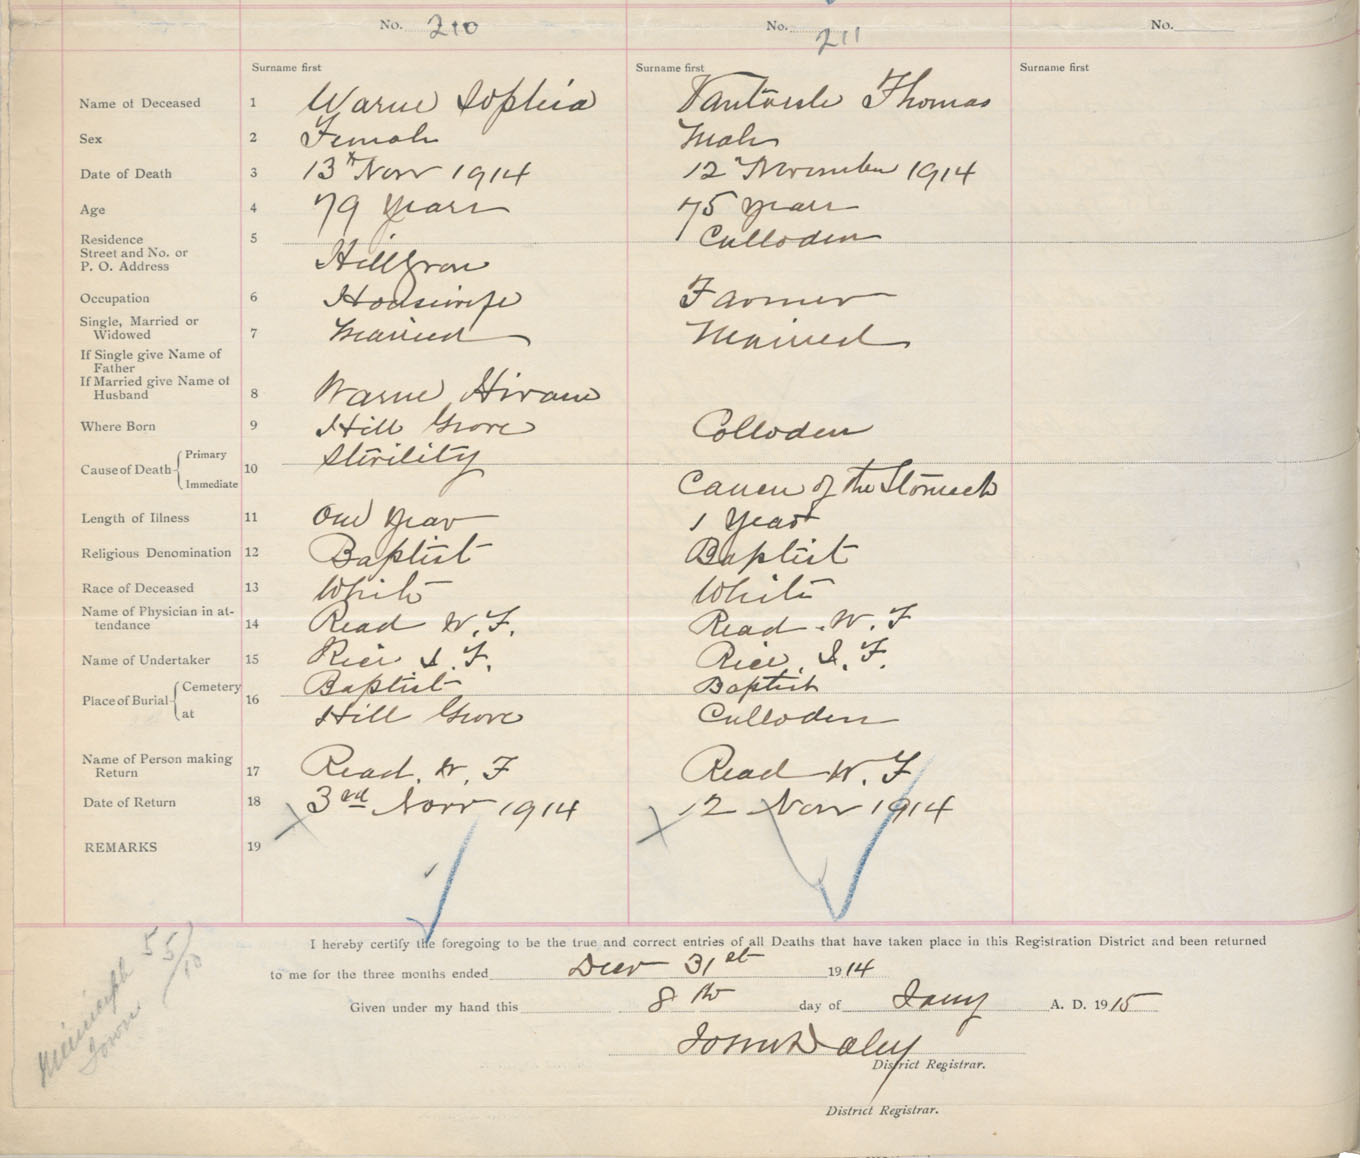 No. 210 No. 211 No.
Surname first Surname first Surname first
Name of Deceased 1 Warne Sophia Thomas
Sex 2 Female Male
Date of Death 3 13th Novr 1914 12th November 1914
Age 4 79 years 75 years
Residence
Street and No. or
P. O. Address 5 Hillgrove Culloden
Occupation 6 Housewife Farmer
Single, Married or
Widowed 7 Married Married
If Single give Name of
Father
If Married give Name of
Husband 8 Warne Hiram
Where Born 9 Hill Grove Colloden
Cause of Death Primary Immediate 10 Sterility Cancer of the Stomach
Length of Illness 11 One year 1 year
Religious Denomination 12 Baptist Baptist
Race of Deceased 13 White White
Name of Physician in at-
tendance 14 Read W. F. Read. W. F
Name of Undertaker 15 Rice I. F. Rice. I. F.
Place of Burial Cemetery 16 Baptist Baptist
at Hill Grove Culloden
Name of Person making
Return 17 Read. W. F Read W. F
Date of Return 18 3rd Novr 1914 12 Novr 1914
REMARKS 19
I hereby certify the foregoing to be the true and correct entries of all Deaths that have taken place in this Registration District and been returned
to me for the three months ended Decr 31st 1914
Given under my hand this 8th day of Jany A. D. 1915
John Daley
District Registrar.
District Registrar.
55/10
Town